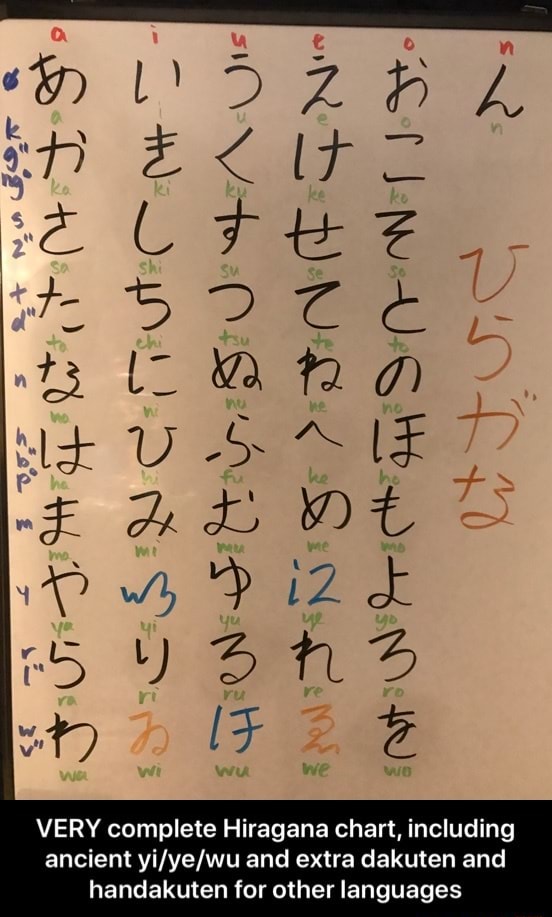 a i u e o n
ø あ い う え お ん
a i u e o n
k g" ng° か き く け こ
ka ki ku ke ko
s z" さ し す せ そ
sa shi su se so
t d" た ち つ て と
ta chi tsu te to
n な に ぬ ね の
na ni nu ne no
h b" p° は ひ ふ へ ほ
ha hi fu he ho
m ま み む め も
ma mi mu me mo
y や 𛀆 ゆ 𛀁 よ
ya yi yu ye yo
r l" ら り る れ ろ
ra ri ru re ro
w v" わ ゐ 𛄟 ゑ を
wa wi wu we wo
ひらがな
VERY complete Hiragana chart, including
ancient yi/ye/wu and extra dakuten and
handakuten for other languages